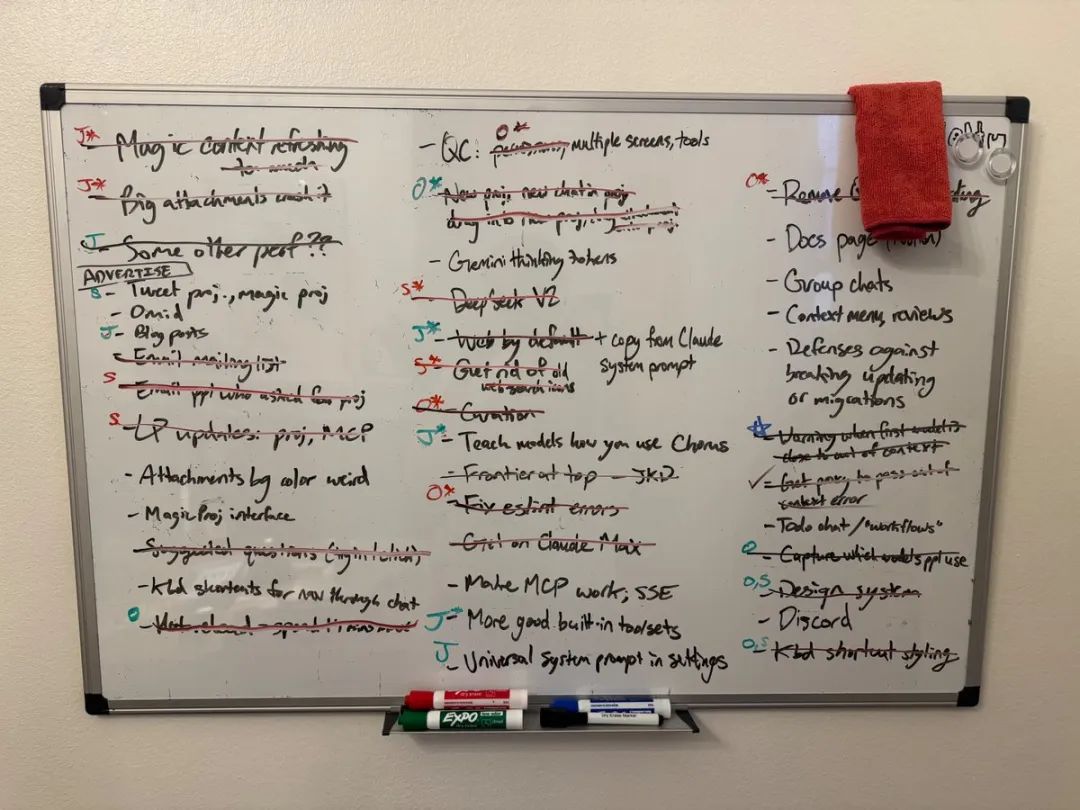 J* - Magic content refreshing
to much
J* - Big attachments crash it
J - Some other perf??
ADVERTISE
S - Tweet proj., magic proj
- Omid
J - Blog posts
- Email mailing list
S - Email ppl who asked for proj
S - LP updates: proj, MCP
- Attachments bg color weird
- Magic Proj interface
- Suggested questions
- Kbd shortcuts for nav through chat
O
O*
- QC: multiple screens, tools
O* - New proj, new chat in proj
drag into proj
- Gemini thinking tokens
S* - DeepSeek V2
J* - Web by default + copy from Claude
system prompt
S* - Get rid of old
web search icons
O* - Curation
J* - Teach models how you use Chorus
- Frontier at top - JKD
O* - Fix eslint errors
- Get on Claude Max
- Make MCP work; SSE
J* - More good built-in toolsets
J - Universal system prompt in settings
O* -
- Docs page
- Group chats
- Context menu, reviews
- Defenses against
breaking updating
or migrations
- Warning when first model is
close to out of context
✓ - Get proxy to pass out of
context error
- Todo chat / "workflows"
O - Capture which models ppl use
O,S - Design system
- Discord
O,S - Kbd shortcut styling
EXPO